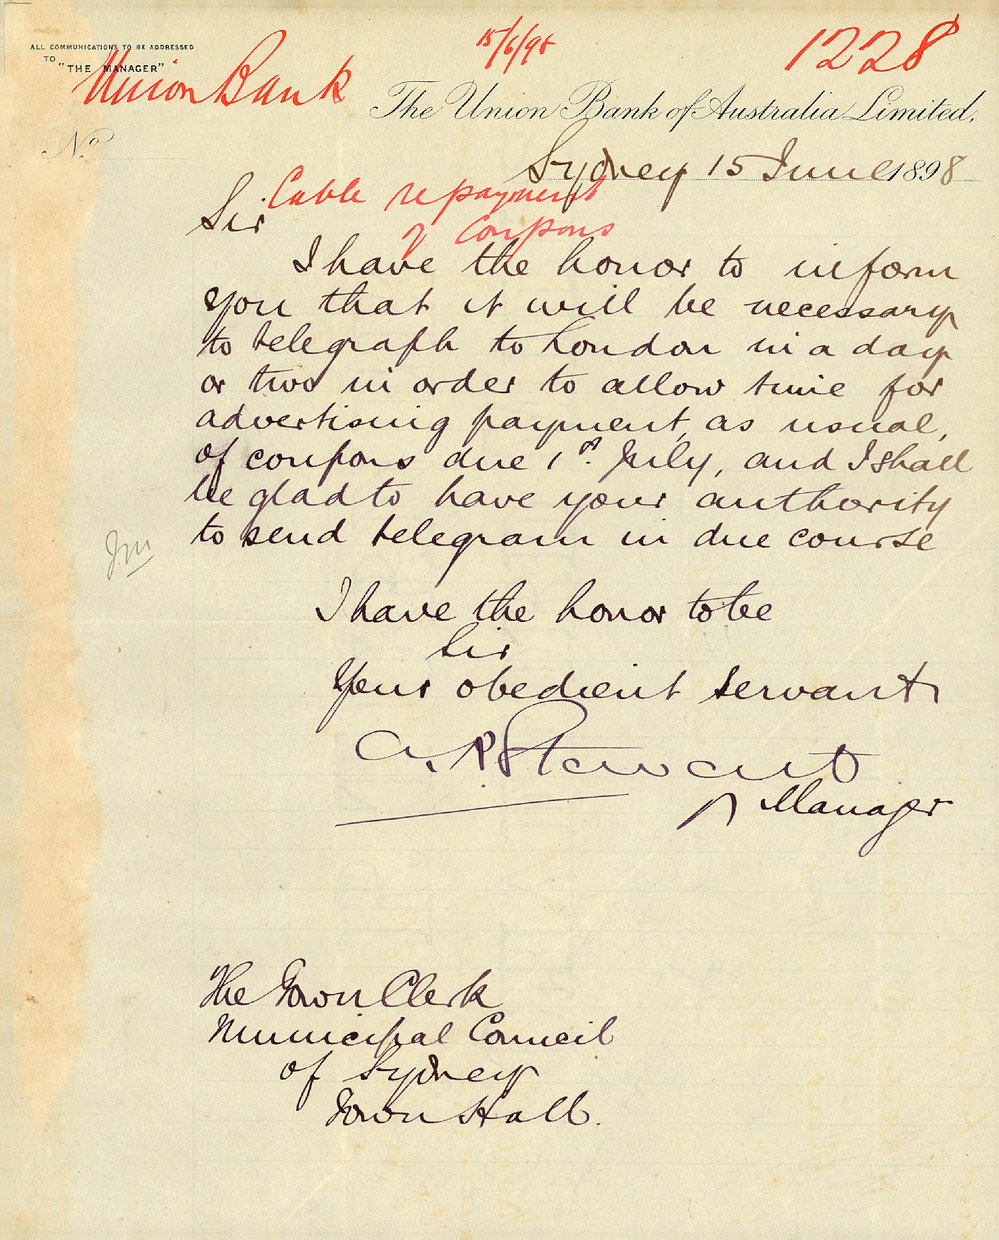 ALL COMMUNICATIONS TO BE ADDRESSED
TO "THE MANAGER"
Union Bank
15/6/98
1228
The Union Bank of Australia Limited.
No.
Sydney 15 June 1898
Cable re payment
of Coupons
Sir
I have the honor to inform
you that it will be necessary
to telegraph to London in a day
or two in order to allow time for
advertising payment, as usual,
of coupons due 1st. July, and I shall
be glad to have your authority
to send telegram in due course
I have the honor to be
Sir
Your obedient servant
Stewart
Manager
The Town Clerk
Municipal Council
of Sydney
Town Hall.